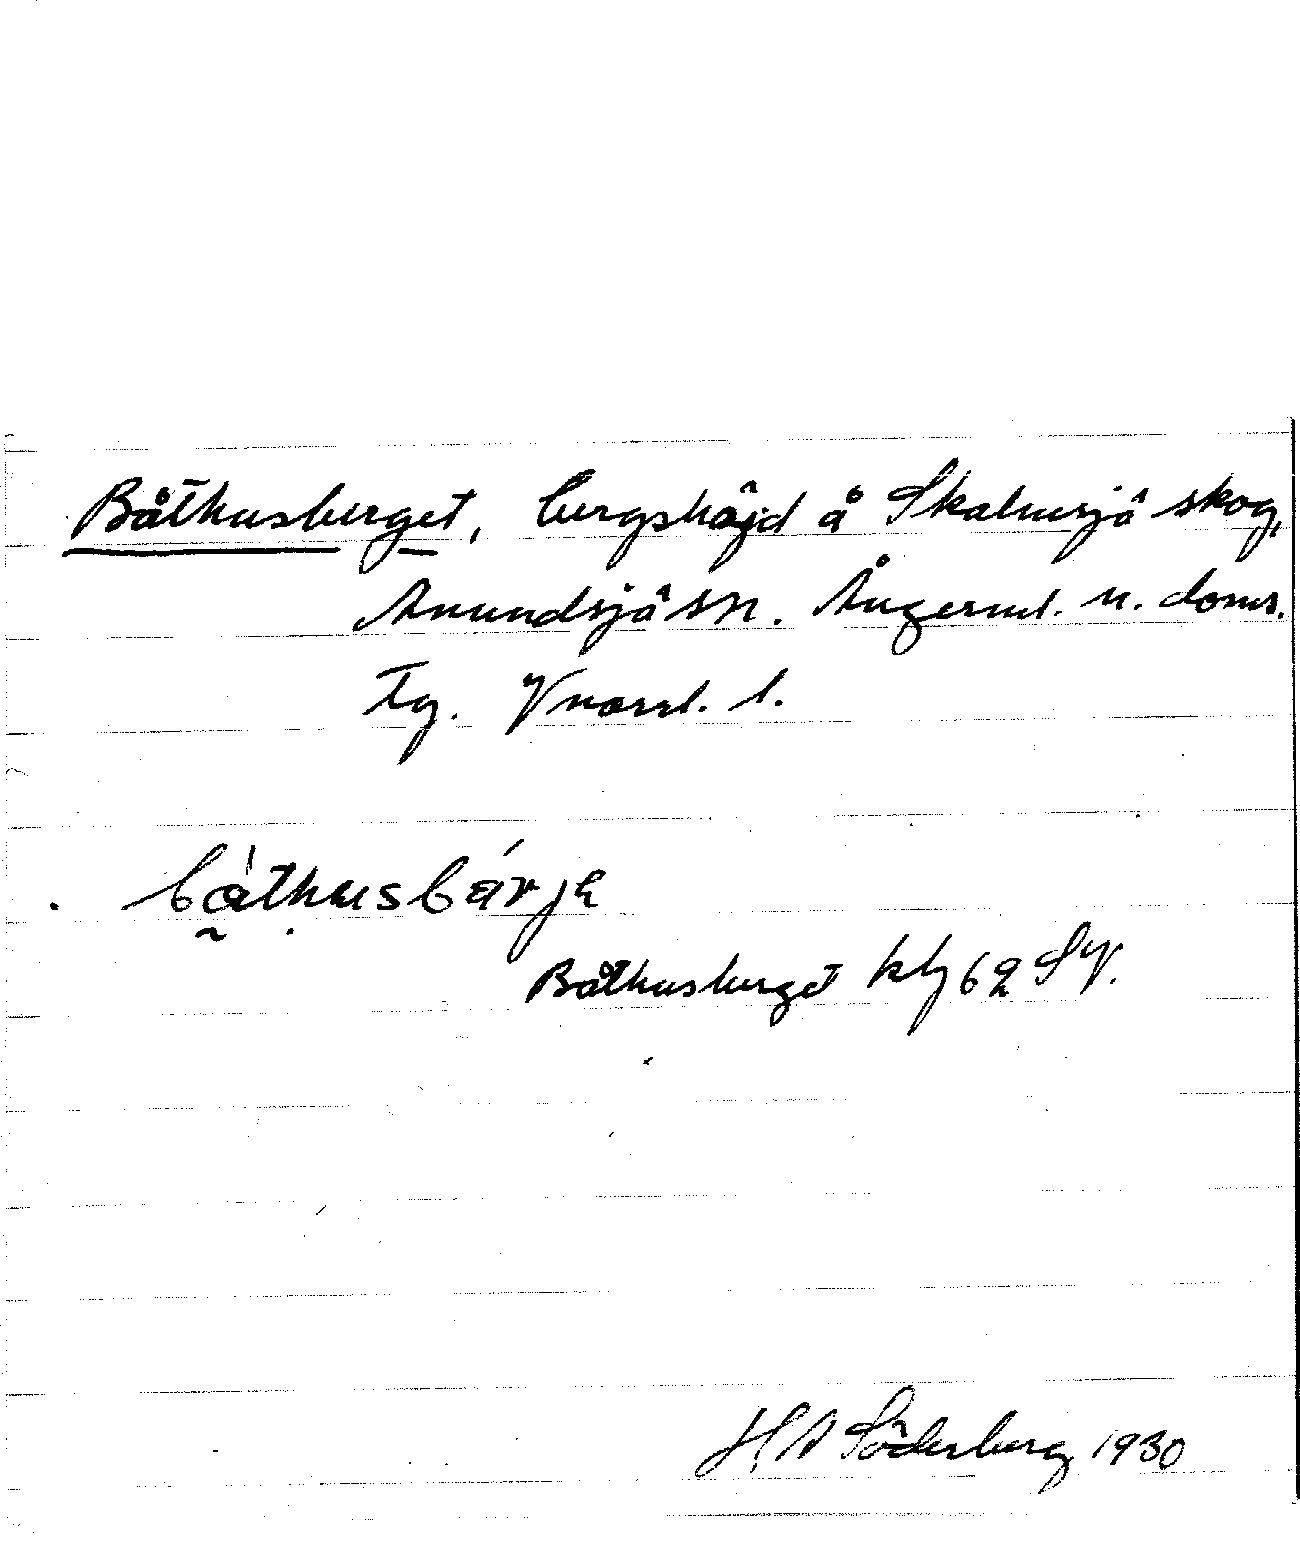 Båthusberget, bergshöjd å Skalmsjö skog,
Anundsjö sn. Ångerml. n. doms.
Fg. Vnorrl. l.
båthusbärje
Båthusberget kbl 62 SV.
H. A Söderberg 1930